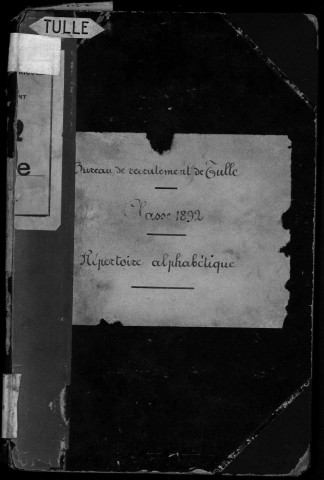 TULLE
Bureau de recrutement de Tulle
Classe 1892
Répertoire alphabétique